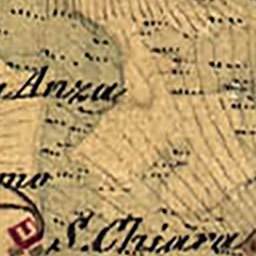 Anzu
mo
S. Chiara